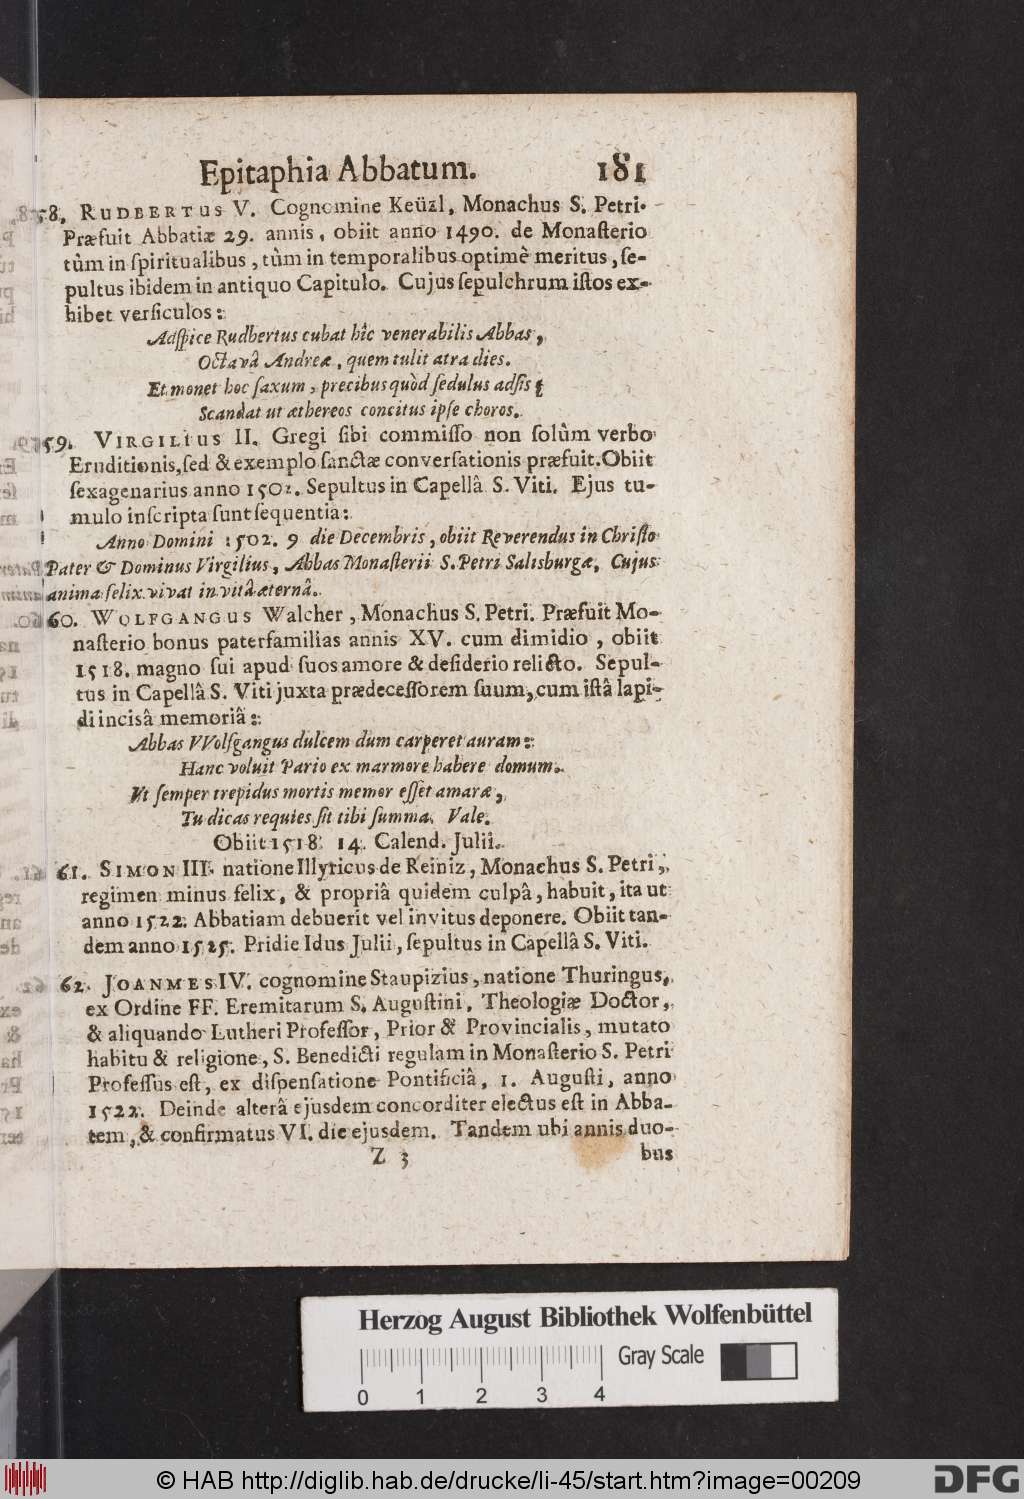 Epitaphia Abbatum. 181
58. RUDBERTUS V. Cognomine Keüzl, Monachus S. Petri.
Præfuit Abbatiæ 29. annis, obiit anno 1490. de Monaſterio
tùm in ſpiritualibus, tùm in temporalibus optimè meritus, ſe-
pultus ibidem in antiquo Capitulo. Cujus ſepulchrum iſtos ex-
hibet verſiculos:
Adſpice Rudbertus cubat hîc venerabilis Abbas,
Octavâ Andreæ, quem tulit atra dies.
Et monet hoc ſaxum, precibus quòd ſedulus adſis
Scandat ut æthereos concitus ipſe choros.
59. VIRGILIUS II. Gregi ſibi commiſſo non ſolùm verbo
Eruditionis, ſed & exemplo ſanctæ converſationis præfuit. Obiit
ſexagenarius anno 1502. Sepultus in Capellâ S. Viti. Ejus tu-
mulo inſcripta ſunt ſequentia:
Anno Domini 1502. 9 die Decembris, obiit Reverendus in Chriſto
Pater & Dominus Virgilius, Abbas Monaſterii S. Petri Salisburgæ, Cujus
anima felix vivat in vitâ æternâ.
60. WOLFGANGUS Walcher, Monachus S. Petri. Præfuit Mo-
naſterio bonus paterfamilias annis XV. cum dimidio, obiit
1518. magno ſui apud ſuos amore & deſiderio relicto. Sepul-
tus in Capellâ S. Viti juxta prædeceſſorem ſuum, cum iſtâ lapi-
di incisâ memoriâ:
Abbas VVolfgangus dulcem dum carperet auram:
Hanc voluit Pario ex marmore habere domum.
Ut ſemper trepidus mortis memor eſſet amaræ,
Tu dicas requies ſit tibi ſumma. Vale.
Obiit 1518. 14. Calend. Julii.
61. SIMON III. natione Illyricus de Reiniz, Monachus S. Petri,
regimen minus felix, & propriâ quidem culpâ, habuit, ita ut
anno 1522. Abbatiam debuerit vel invitus deponere. Obiit tan-
dem anno 1525. Pridie Idus Julii, ſepultus in Capellâ S. Viti.
62. JOANMES IV. cognomine Staupizius, natione Thuringus,
ex Ordine FF. Eremitarum S. Auguſtini, Theologiæ Doctor,
& aliquando Lutheri Profeſſor, Prior & Provincialis, mutato
habitu & religione, S. Benedicti regulam in Monaſterio S. Petri
Profeſſus eſt, ex diſpenſatione Pontificiâ, 1. Auguſti, anno
1522. Deinde alterâ ejusdem concorditer electus eſt in Abba-
tem, & confirmatus VI. die ejusdem. Tandem ubi annis duo-
Z 3 bus
Herzog August Bibliothek Wolfenbüttel
Gray Scale
0 1 2 3 4
© HAB http://diglib.hab.de/drucke/li-45/start.htm?image=00209
DFG